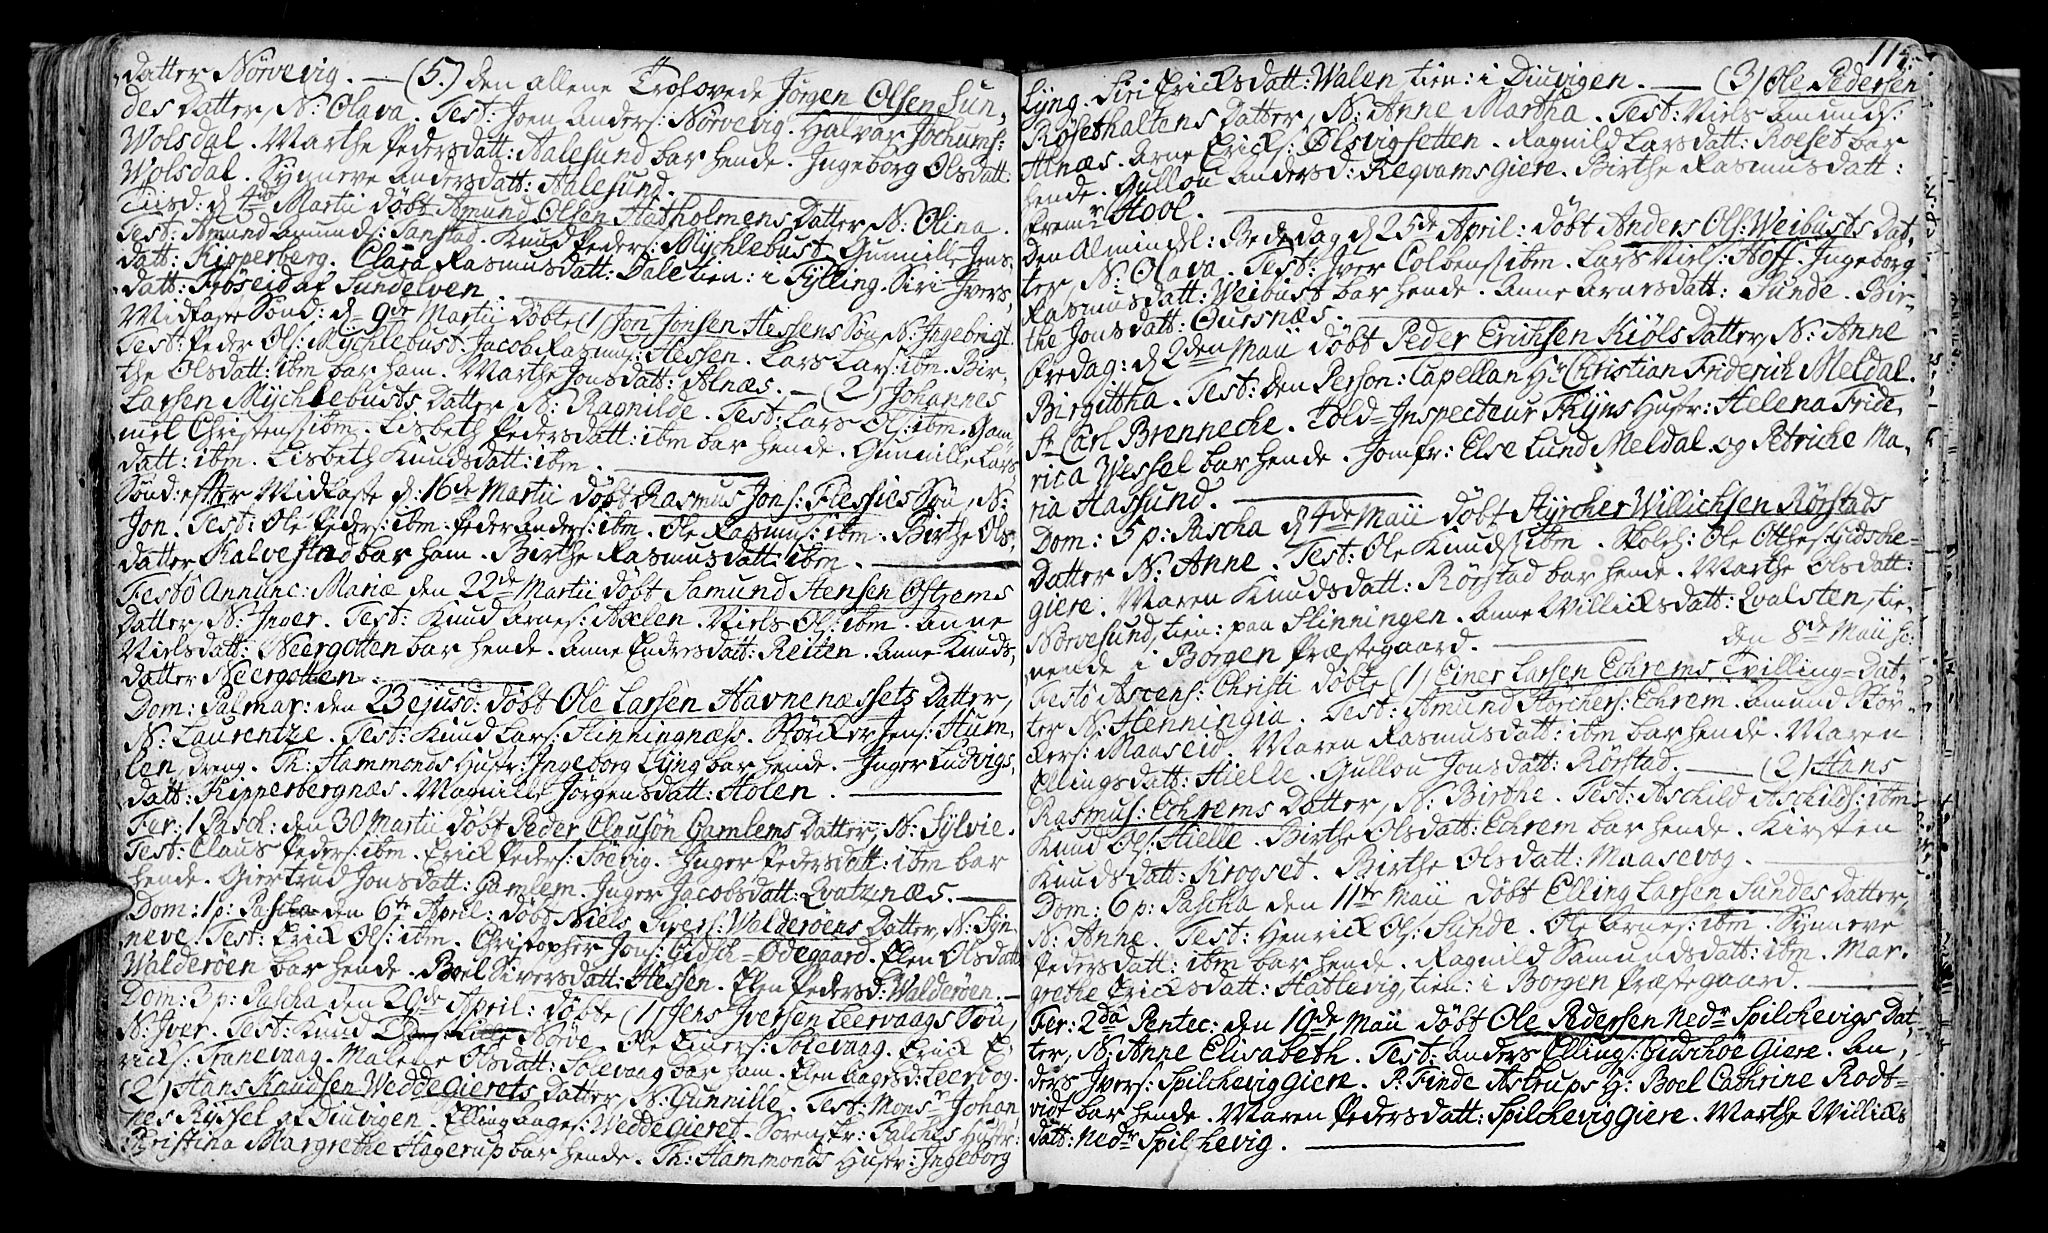 datter Nörvevig. — (5.) den allene Trolovede Jörgen Olsen Sun,
des Datter, N: Olava. Test: Joen Anders: Nörvevig. Halvar Jochums:
Wolsdal. Marthe Pedersdatt: Aalesund bar hende. Ingeborg Olsdatt:
Wolsdal. Synneve Andersdatt: Aalesund. —
Tiisd: d 4de Martii döbt Amund Olsen Hatholmens Datter, N: Olina.
Test: Amund Amunds: Tanstad. Knud Peders: Mychlebust. Gunnille Jens,
datt: Kipperberg. Clara Rasmusdatt: Dale tien: i Fylling. Siri Ivers,
datt: Fröseid af Sundelven. —
Midfaste Sönd: d 9de Martii döbte (1) Jon Jonsen Hessens Sön, N: Ingebrigt.
Test: Peder Ols: Mychlebust. Jacob Rasmus: Hessen. Lars Lars: ibm. Bir-
the Olsdatt: ibm bar ham. Marthe Jonsdatt: Alnæs. — (2) Johannes
Larsen Mychlebusts Datter N: Ragnilde. Test: Lars Ol: ibm. Gam,
mel Christens: ibm. Lisbeth Pedersdatt: ibm bar hende. Gunnille Lars
datt: ibm. Lisbeth Knudsdatt: ibm. —
Sönd: efter Midfaste d: 16de Martii döbt Rasmus Jons: Flessies Sön, N:
Jon. Test: Ole Peders: ibm. Peder Anders: ibm. Ole Rasmus: ibm. Birthe Ols,
datter Kalvestad bar ham. Birthe Rasmusdatt: ibm. —
Festo Annunc: Mariæ den 22de Martii döbt Samund Hensen Ostrems
Datter, N: Inger. Test: Knud Arnes: Axlen. Niels Ols: ibm. Anne
Nielsdatt: Neergotten bar hende. Anne Endresdatt: Reiten. Anne Knuds,
datter Neergotten. —
Dom: Palmar: den 23 ejusd: döbt Ole Larsen Havnenæssets Datter,
N: Laurentze. Test: Knud Lars: Slinningnæss. Störker Jens: Hum,
len, dreng. Th: Hammonds Hustr: Ingeborg Lÿng bar hende. Inger Ludvigs,
datt: Kipperbergnæs. Magnille Jörgensdatt: Holen. —
Fer: 1 Pasch: den 30 Martii döbt Peder Clausön Gamlems Datter, N: Sylvie.
Test: Claus Peders: ibm. Erick Peders: Söevig. Inger Pedersdatt: ibm bar
hende. Giertrud Jonsdatt: Gamlem. Inger Jacobsdatt: Qvatznæs. —
Dom: 1 p: Pascha den 6te April: döbt Niels Sivers: Walderöens Datter, N: Syn-
neve. Test: Erick Ols: ibm. Christopher Jons: Gidsch=Ödegaard. Elen Olsdatt:
Walderöen bar hende. Boel Siversdatt: Hessen. Elen Pedersd: Walderöen. —
Dom: 3 p: Pascha den 20de April: döbte (1) Jens Iversen Leervaags Sön,
N: Iver. Test: Knud Nörve. Ole Einers: Solevaag. Erick E,
ricks: Tranevaag. Malene Olsdatt: Solevaag bar ham. Elen Aagesd: Leervog.
(2) Hans Knudsen Weddegierets Datter, N: Gunnille. Test: Monsr Johan,
nes Ryssel af Diuvigen. Elling Aages: Weddegieret. Sören Fr: Falches Hustr:
Kristina Margrethe Hagerup bar hende. Th: Hammonds Hustr: Ingeborg
115.
Lÿng. Siri Ericksdatt: Walen tien: i Diuvigen. — (3) Ole Pedersen
Rösethaltens Datter, N: Anne Martha. Test: Niels Amunds:
Alnæs. Arne Ericks: Olsvigsetten. Ragnild Larsdatt: Roeset bar
hende. Gullou Andersd: Reqvamsgiere. Birthe Rasmusdatt:
Fremr Hool. —
Den Almindel: Bededag d 25de April: döbt Anders Ols: Weibusts Dat,
ter N: Olava. Test: Iver Colbens: ibm. Lars Niels: Hoff. Ingeborg
Rasmusdatt: Weibust bar hende. Anne Arnesdatt: Sunde. Bir-
the Jonsdatt: Oursnæs. —
Fredag: d 2den Maii döbt Peder Erichsen Kiöls Datter, N: Anne
Birgittha. Test: den Person: Capellan Hr Christian Friderich Meldal.
Sr Carl Brennecke. Told=Inspecteur Thÿns Hustr: Helena Fride,
rica Wessel bar hende. Jomfr: Else Lund Meldal og Petriche Ma-
ria Hassund. —
Dom: 5 p: Pascha d 4de Maii döbt Styrcher Willichsen Rörstads
Datter N: Anne. Test: Ole Knuds: ibm. Skoleh: Ole Otthes: Gidsche=
giere. Maren Knudsdatt: Rörstad bar hende. Marthe Olsdatt:
Nörvesund, tien: paa Slinningen. Anne Willicksdatt: Qvalsten, tie-
nende i Borgen Præstegaard. — den 8de Maii sc:
Festo Ascens: Christi döbte (1) Einer Larsen Echrems Tvilling=Dat,
ter N: Henningia. Test: Amund Storchers: Echrem. Amund Stör-
kers: Maaseid. Maren Rasmusdatt: ibm bar hende. Maren
Ellingsdatt: Hielle. Gullou Jonsdatt: Rörstad. — (2) Hans
Rasmus: Echrems Datter, N: Birthe. Test: Aschild Aschilds: ibm.
Knud Ols: Hielle. Birthe Olsdatt: Echrem bar hende. Kirsten
Knudsdatt: Krogset. Birthe Olsdatt: Maasevog. —
Dom: 6 p: Pascha den 11te Maii döbt Elling Larsen Sundes Datter,
N: Anne. Test: Henrick Ols: Sunde. Ole Arnes: ibm. Synneve
Pedersdatt: ibm bar hende. Ragnild Samundsdatt: ibm. Mar-
grethe Ericksdatt: Hatlevig, tien: i Borgen Præstegaard. —
Fer: 2da Pentec: den 19de Maii döbt Ole Pedersen Nedr Spilchevigs Dat-
ter, N: Anne Elisabeth. Test: Anders Ellings: Gidschöegiere. An,
ders Ivers: Spilcheviggiere. P: Finde Astrups H: Boel Cathrine Rodt=
vidt bar hende. Maren Pedersdatt: Spilcheviggiere. Marthe Willicks
datt: Nedr Spilchevig. —